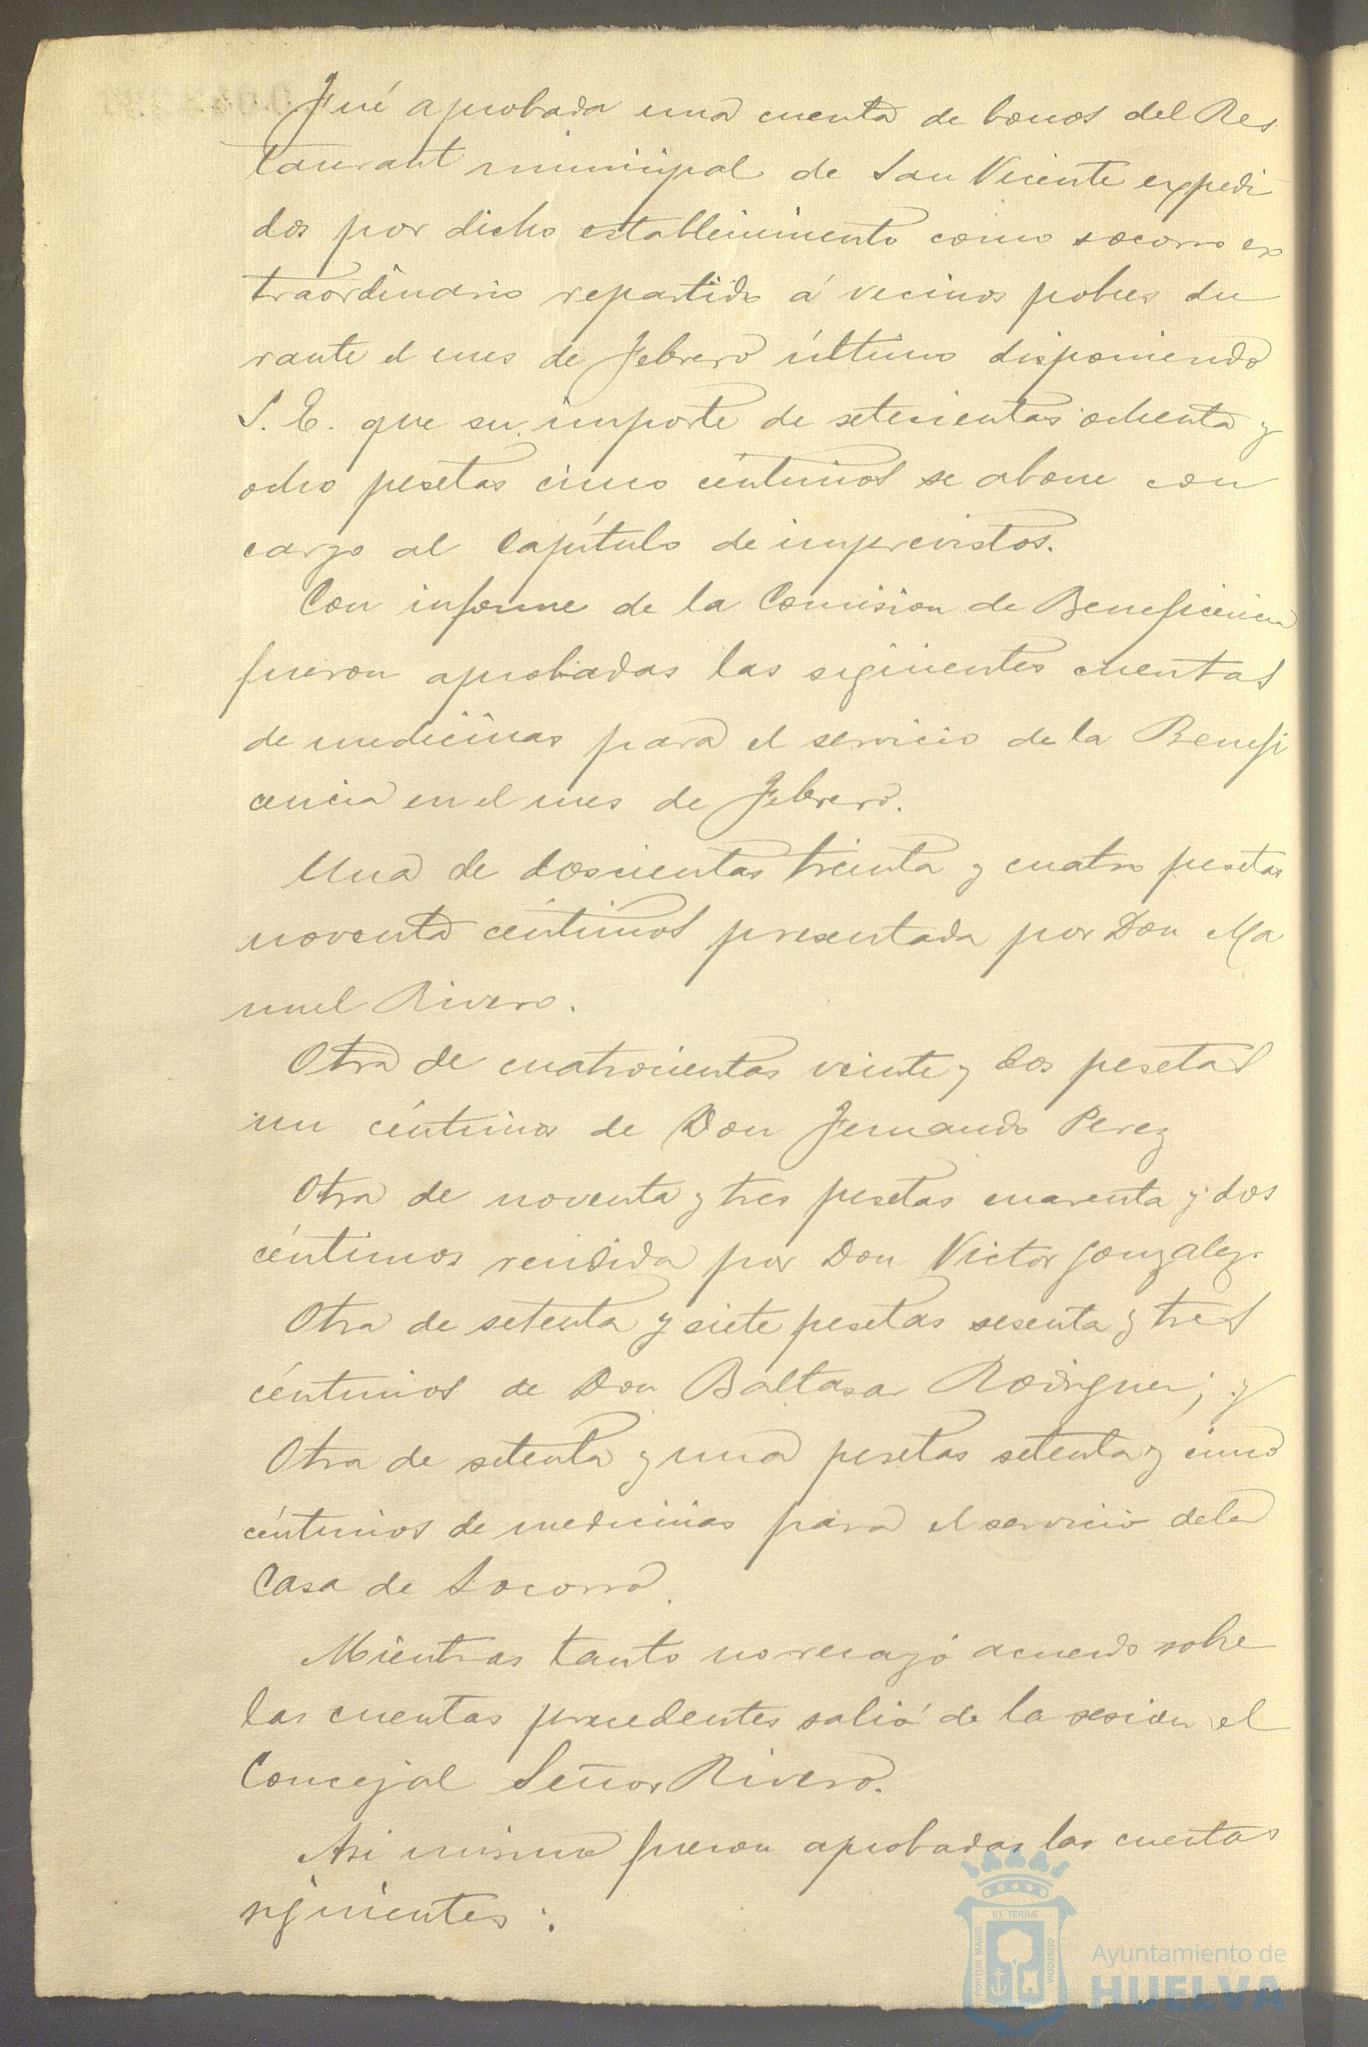 Fué aprobada una cuenta de bonos del Res
taurant municipal de San Vicente expedi
dos por dicho establecimiento como socorro ex
traordinario repartido á vecinos pobres du
rante el mes de Febrero último disponiendo
S. E. que su importe de setecientas ochenta y
ocho pesetas cinco céntimos se abone con
cargo al Capítulo de imprevistos.
Con informe de la Comision de Beneficencia
fueron aprobadas las siguientes cuentas
de medicinas para el servicio de la Benefi
cencia en el mes de Febrero.
Una de doscientas treinta y cuatro pesetas
noventa céntimos presentada por Don Ma
nuel Rivero.
Otra de cuatrocientas veinte y dos pesetas
un céntimos de Don Fernando Perez
Otra de noventa y tres pesetas cuarenta y dos
céntimos rendida por Don Victor Gonzalez.
Otra de setenta y siete pesetas sesenta y tres
céntimos de Don Baltasar Rodriguez; y
Otra de setenta y una pesetas setenta y cinco
céntimos de medicinas para el servicio de la
Casa de Socorro.
Mientras tanto no recayó acuerdo sobre
las cuentas precedentes salió de la sesion el
Concejal Señor Rivero.
Asi mismo fueron aprobadas las cuentas
siguientes:
PORTUS MARIS
ET TERRÆ
CUSTODIA
Ayuntamiento de
HUELVA